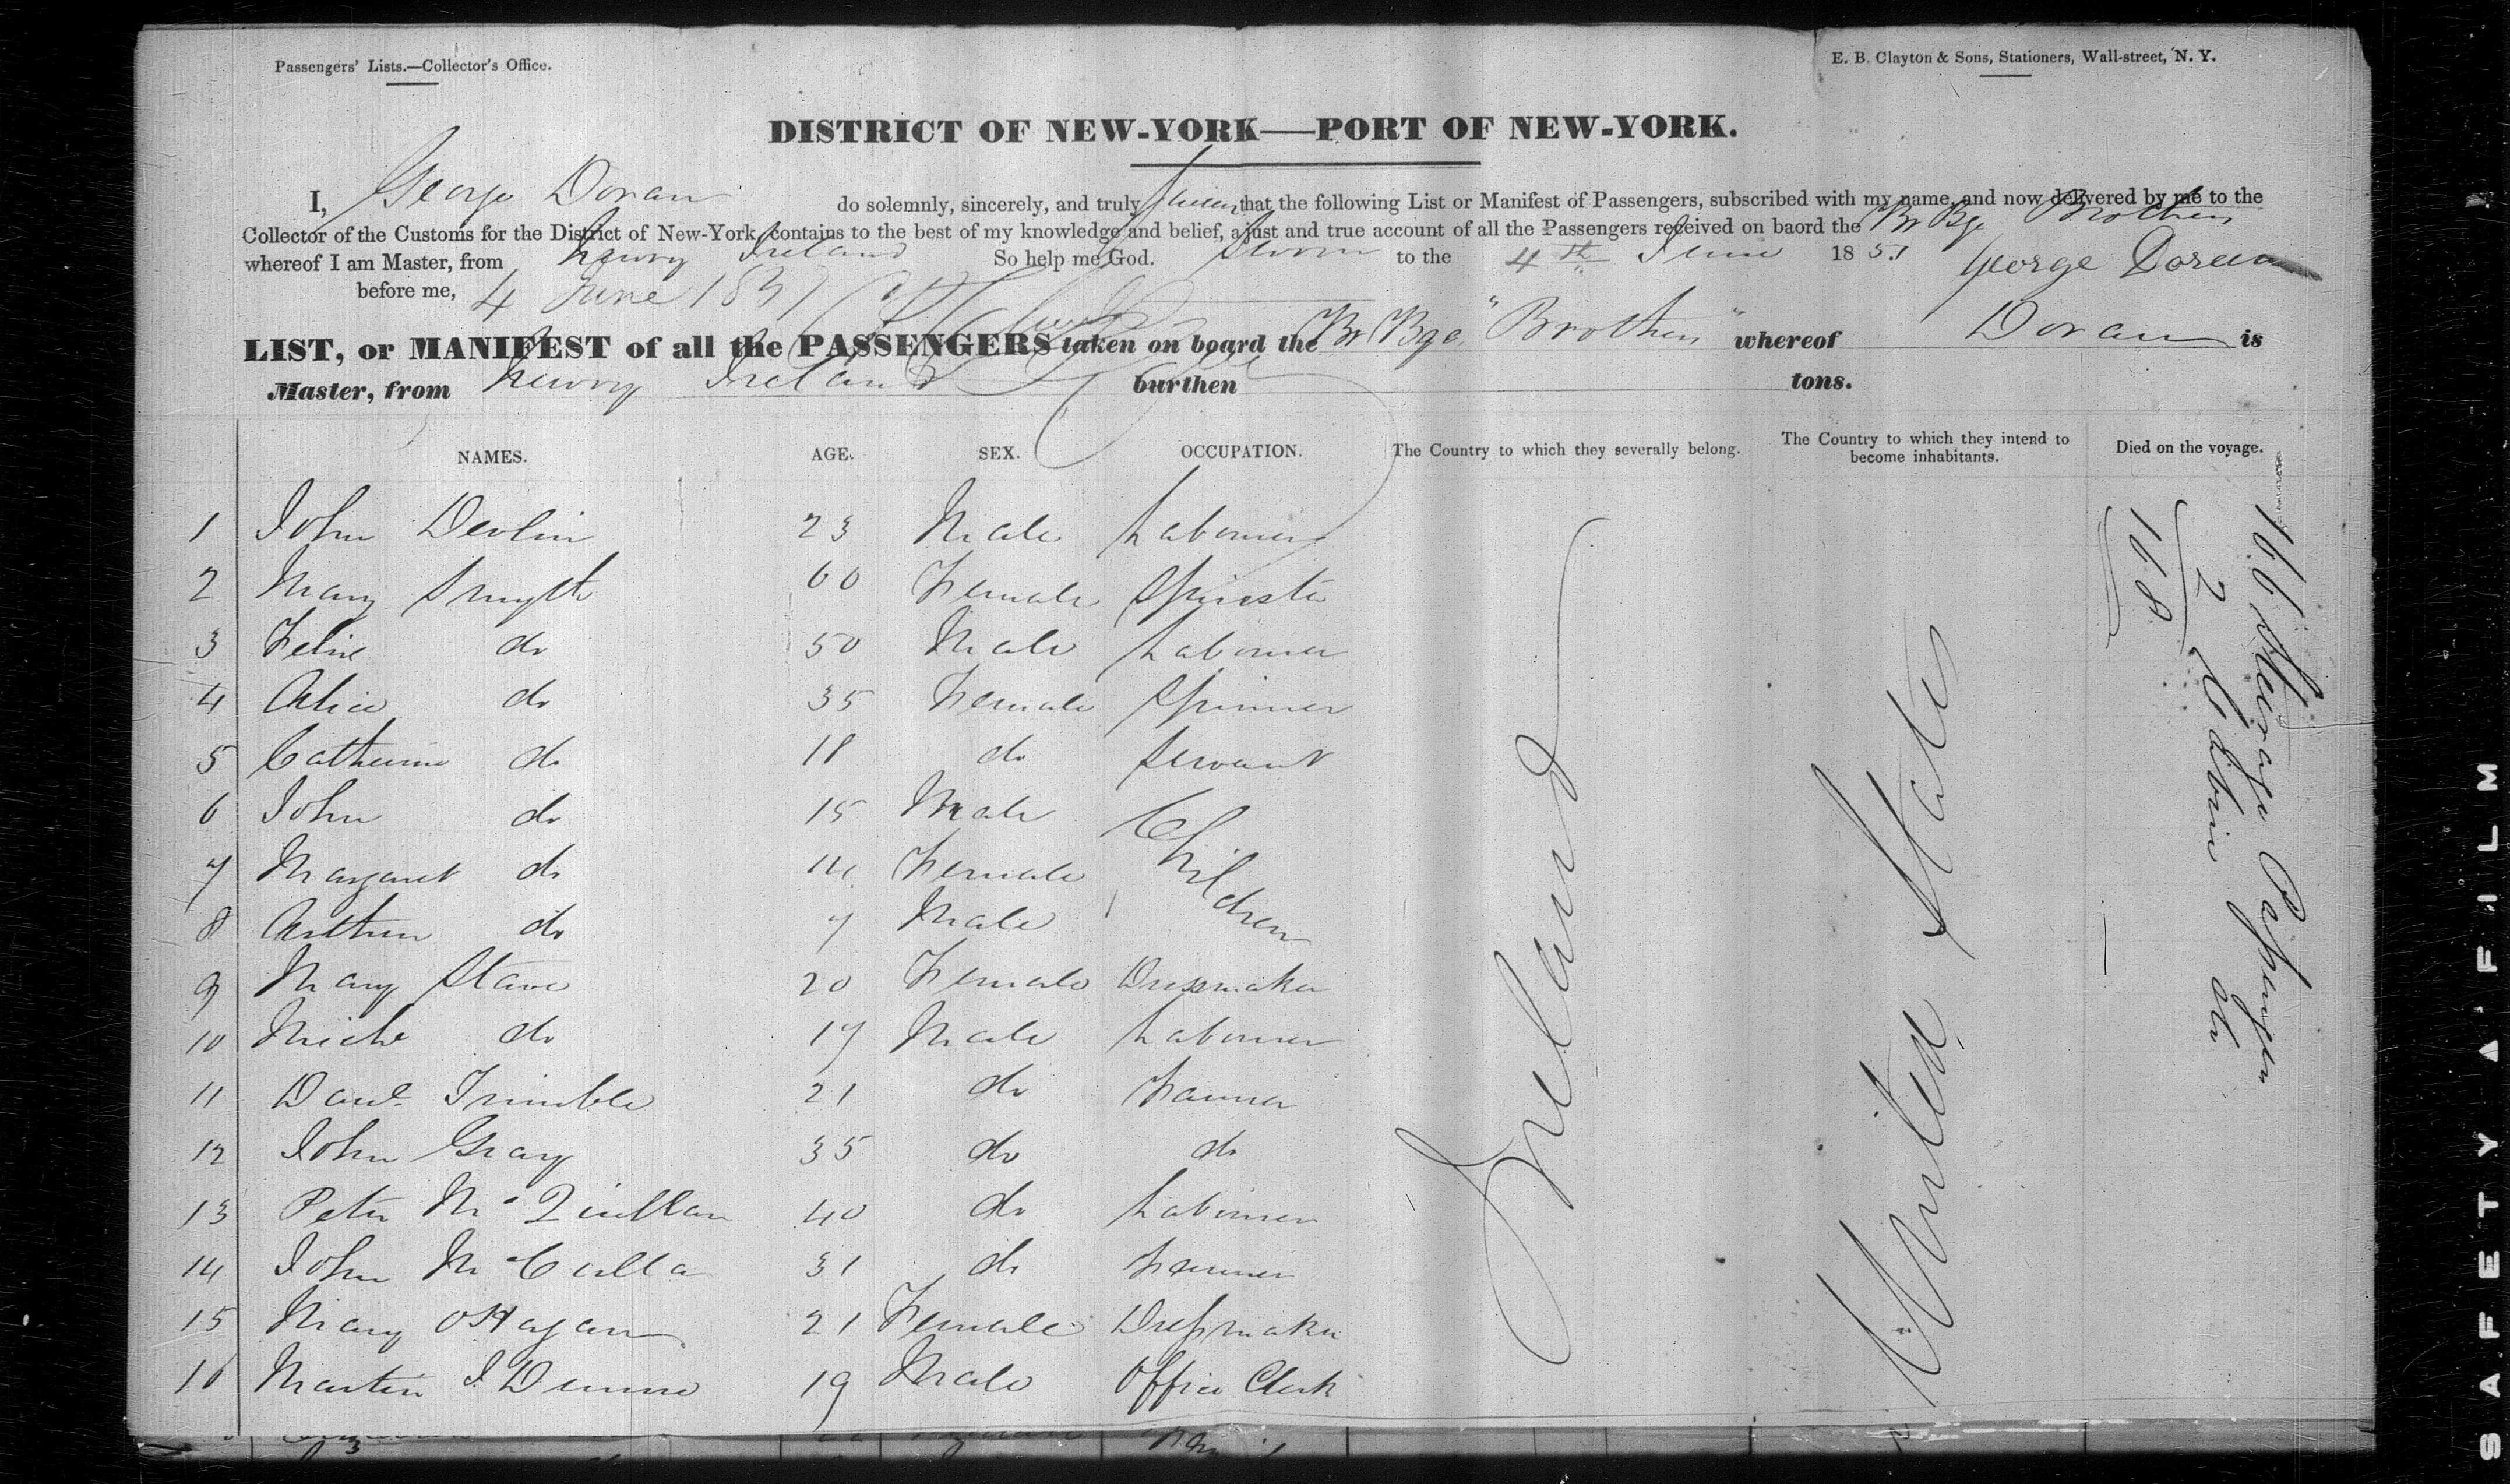 Passengers' Lists.—Collector's Office.
E. B. Clayton & Sons, Stationers, Wall-street, N. Y.
DISTRICT OF NEW-YORK—PORT OF NEW-YORK.
I, George Doran do solemnly, sincerely, and truly swear that the following List or Manifest of Passengers, subscribed with my name, and now delivered by me to the
Collector of the Customs for the District of New-York, contains to the best of my knowledge and belief, a just and true account of all the Passengers received on baord the Br Bge Brothers
whereof I am Master, from Newry Ireland So help me God. Sworn to the 4th June 1851 George Doran
before me, 4 June 1851
LIST, or MANIFEST of all the PASSENGERS taken on board the Br Bge "Brothers" whereof Doran is
Master, from Newry Ireland burthen tons.
NAMES. AGE. SEX. OCCUPATION. The Country to which they severally belong. The Country to which they intend to become inhabitants. Died on the voyage.
1 John Devlin 23 Male Labourer
2 Mary Smyth 60 Female Spinster
3 Felix do 50 Male Labourer
4 Alice do 35 Female Spinner
5 Catherine do 18 do Servant
6 John do 15 Male Children
7 Margaret do 14 Female
8 Arthur do 7 Male
9 Mary 20 Female Dressmaker
10 do 17 Male Labourer
11 Danl Trimble 21 do Farmer
12 John Gray 35 do do
13 Peter McQuillan 40 do Labourer
14 John McCulla 31 do Farmer
15 Mary O'Hagan 21 Female Dressmaker
16 Martin J. Dunne 19 Male Office Clerk
Ireland
United States
166 Steerage Passengers
2 Cabin do
168
SAFETY A FILM